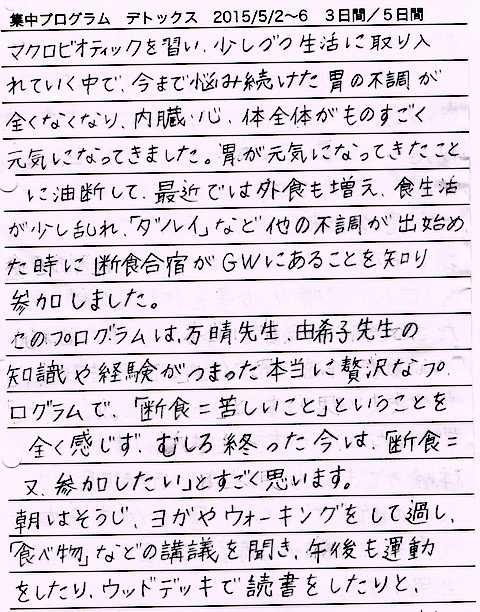 集中プログラム　デトックス　2015/5/2～6　3日間／5日間
マクロビオティックを習い、少しづつ生活に取り入
れていく中で、今まで悩み続けた胃の不調が
全くなくなり、内臓・心、体全体がものすごく
元気になってきました。胃が元気になってきたこと
に油断して、最近では外食も増え、食生活
が少し乱れ、「ダルイ」など他の不調が出始め
た時に断食合宿がGWにあることを知り
参加しました。
このプログラムは、万晴先生、由希子先生の
知識や経験がつまった本当に贅沢なプ
ログラムで、「断食＝苦しいこと」ということを
全く感じず、むしろ終った今は、「断食＝
又、参加したい」とすごく思います。
朝はそうじ、ヨガやウォーキングをして過し、
「食べ物」などの講議を聞き、午後も運動
をしたり、ウッドデッキで読書をしたりと、